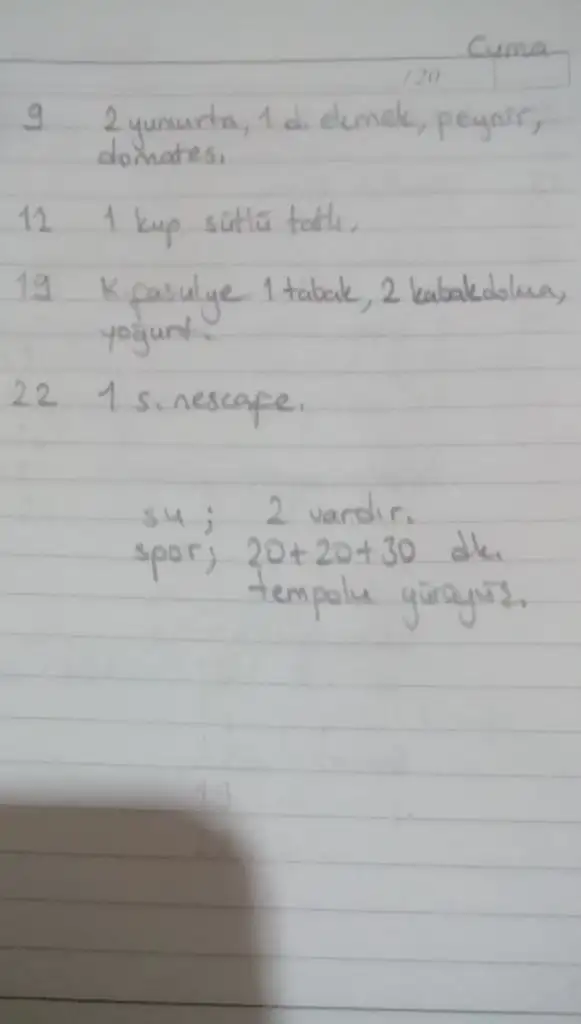 Cuma
/20
9 2 yumurta, 1 d. ekmek, peynir,
domates.
12 1 kup sütlü tatlı.
19 K fasulye 1 tabak, 2 kabakdolma,
yoğurt.
22 1 s. nescafe.
su ; 2 vardır.
spor; 20+20+30 dk.
tempolu yürüyüş.